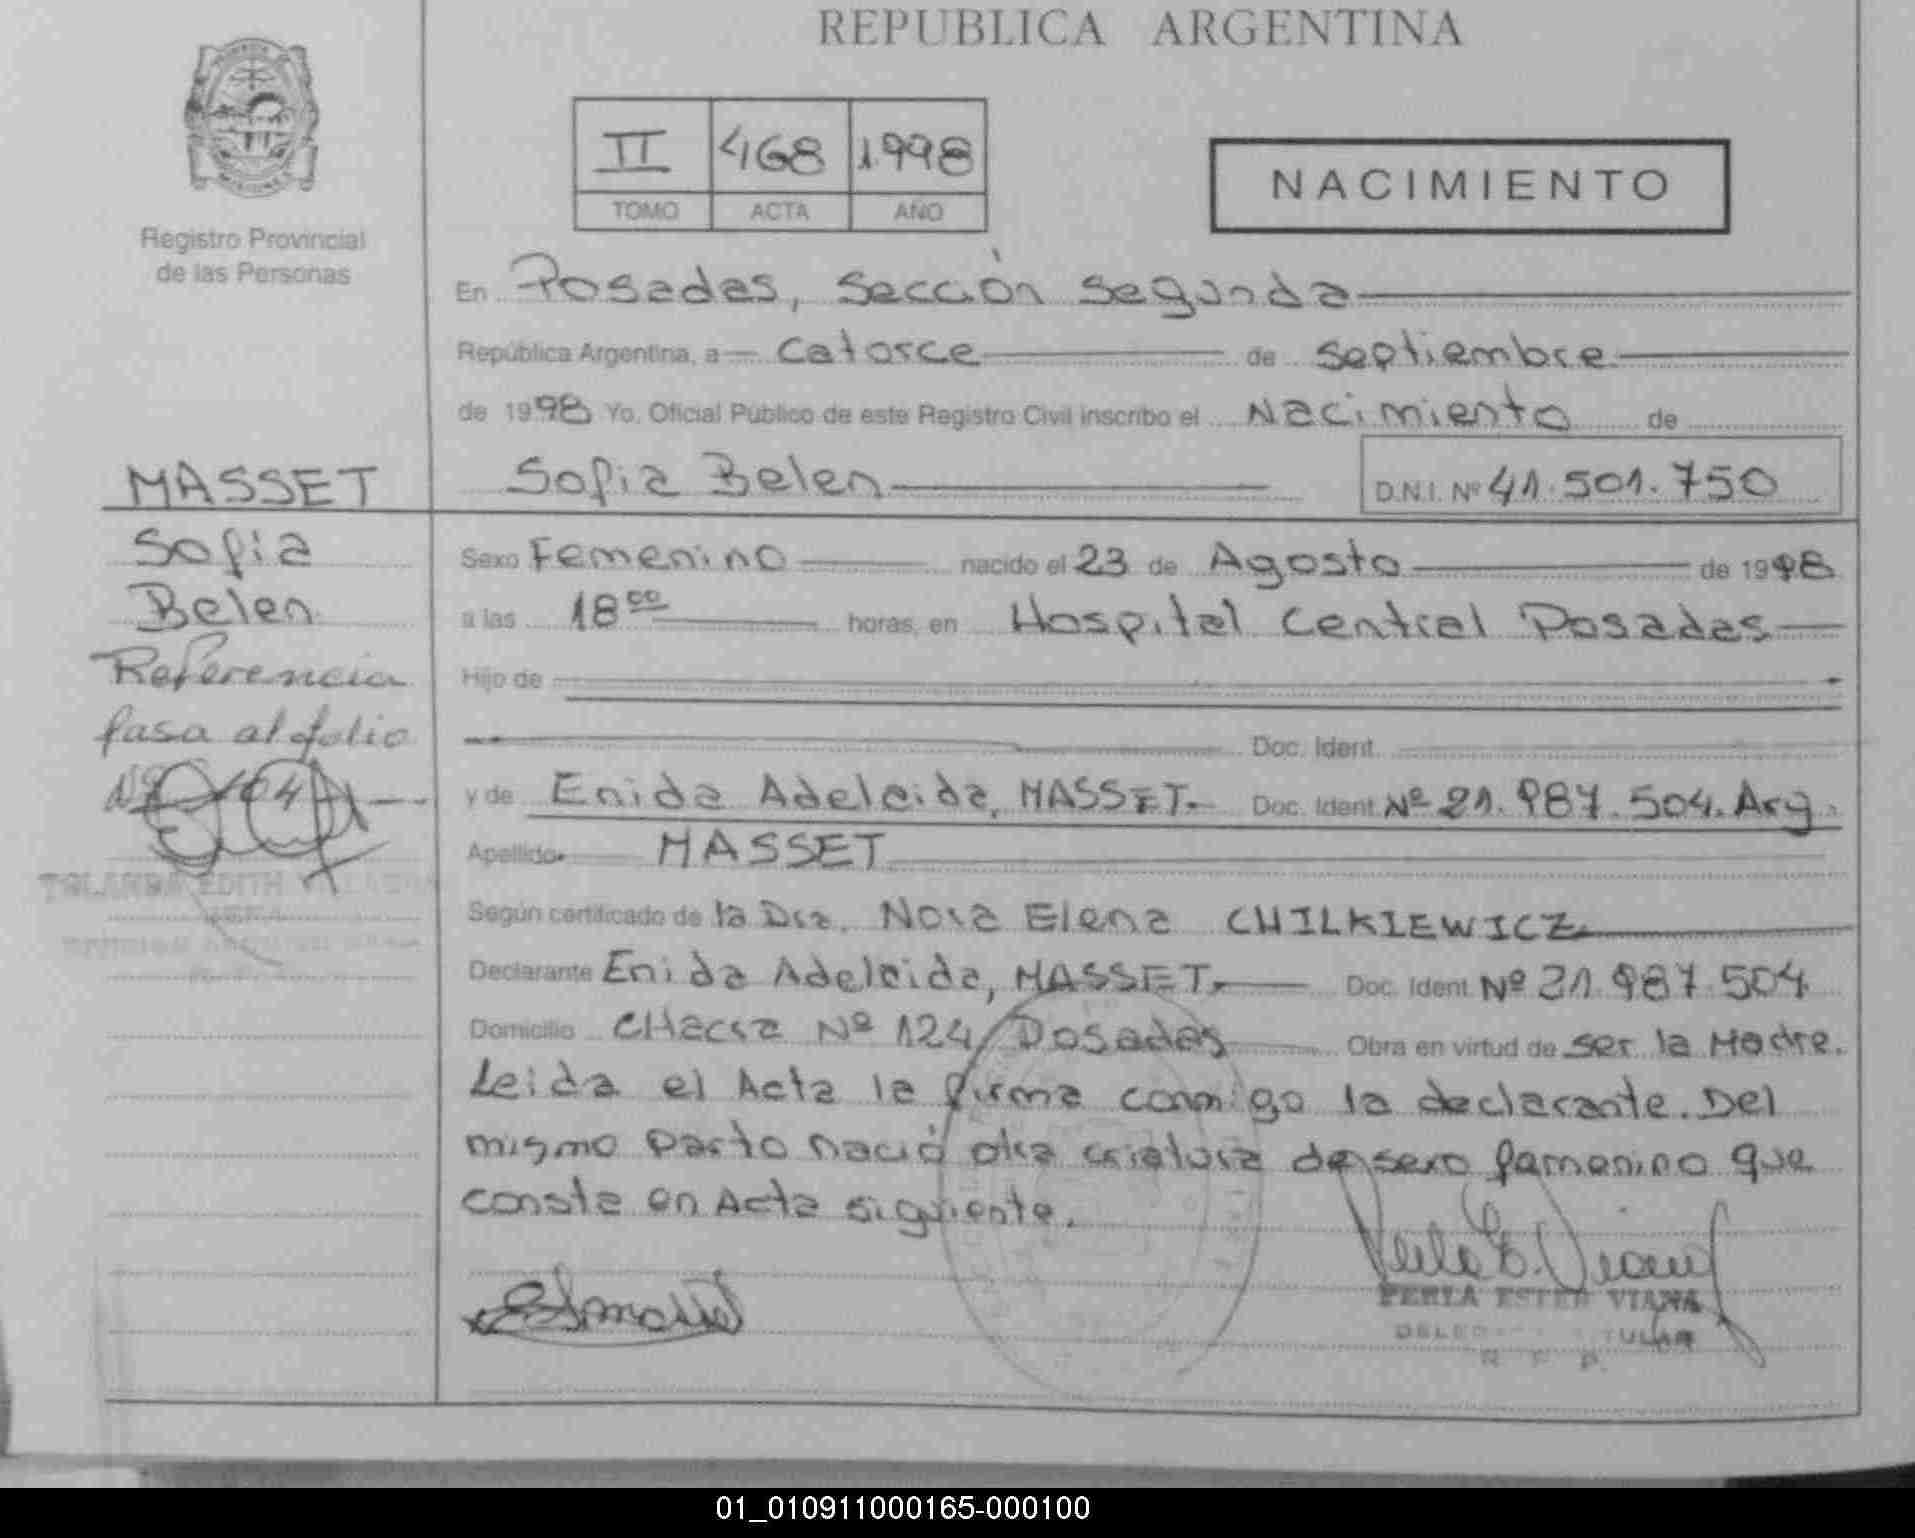 REPUBLICA ARGENTINA
MISIONES
Registro Provincial
de las Personas
II 468 1998
TOMO ACTA AÑO
NACIMIENTO
En Posadas, Sección Segunda
República Argentina, a Catorce de Septiembre
de 1998 Yo, Oficial Público de este Registro Civil inscribo el Nacimiento de
MASSET Sofia Belen D.N.I. Nº 41.501.750
Sofia
Belen
Referencia
pasa al folio
Nº 104
Sexo Femenino nacido el 23 de Agosto de 1998
a las 18 00 horas, en Hospital Central Posadas
Hijo de
Doc. Ident.
y de Enida Adelaida, MASSET. Doc. Ident. Nº 21.987.504. Arg.
Apellido MASSET
Según certificado de la Dra. Nora Elena CHILKIEWICZ
Declarante Enida Adelaida, MASSET. Doc. Ident. Nº 21.987.504
Domicilio CHacra Nº 124, Posadas Obra en virtud de ser la Madre.
Leida el Acta la firma conmigo la declarante. Del
mismo parto nació otra criatura de sexo famenino que
consta en Acta siguiente.
YOLANDA EDITH
JEFA
PERLA ESTER VIANA
TULAR
R. P. P.
01_010911000165-000100